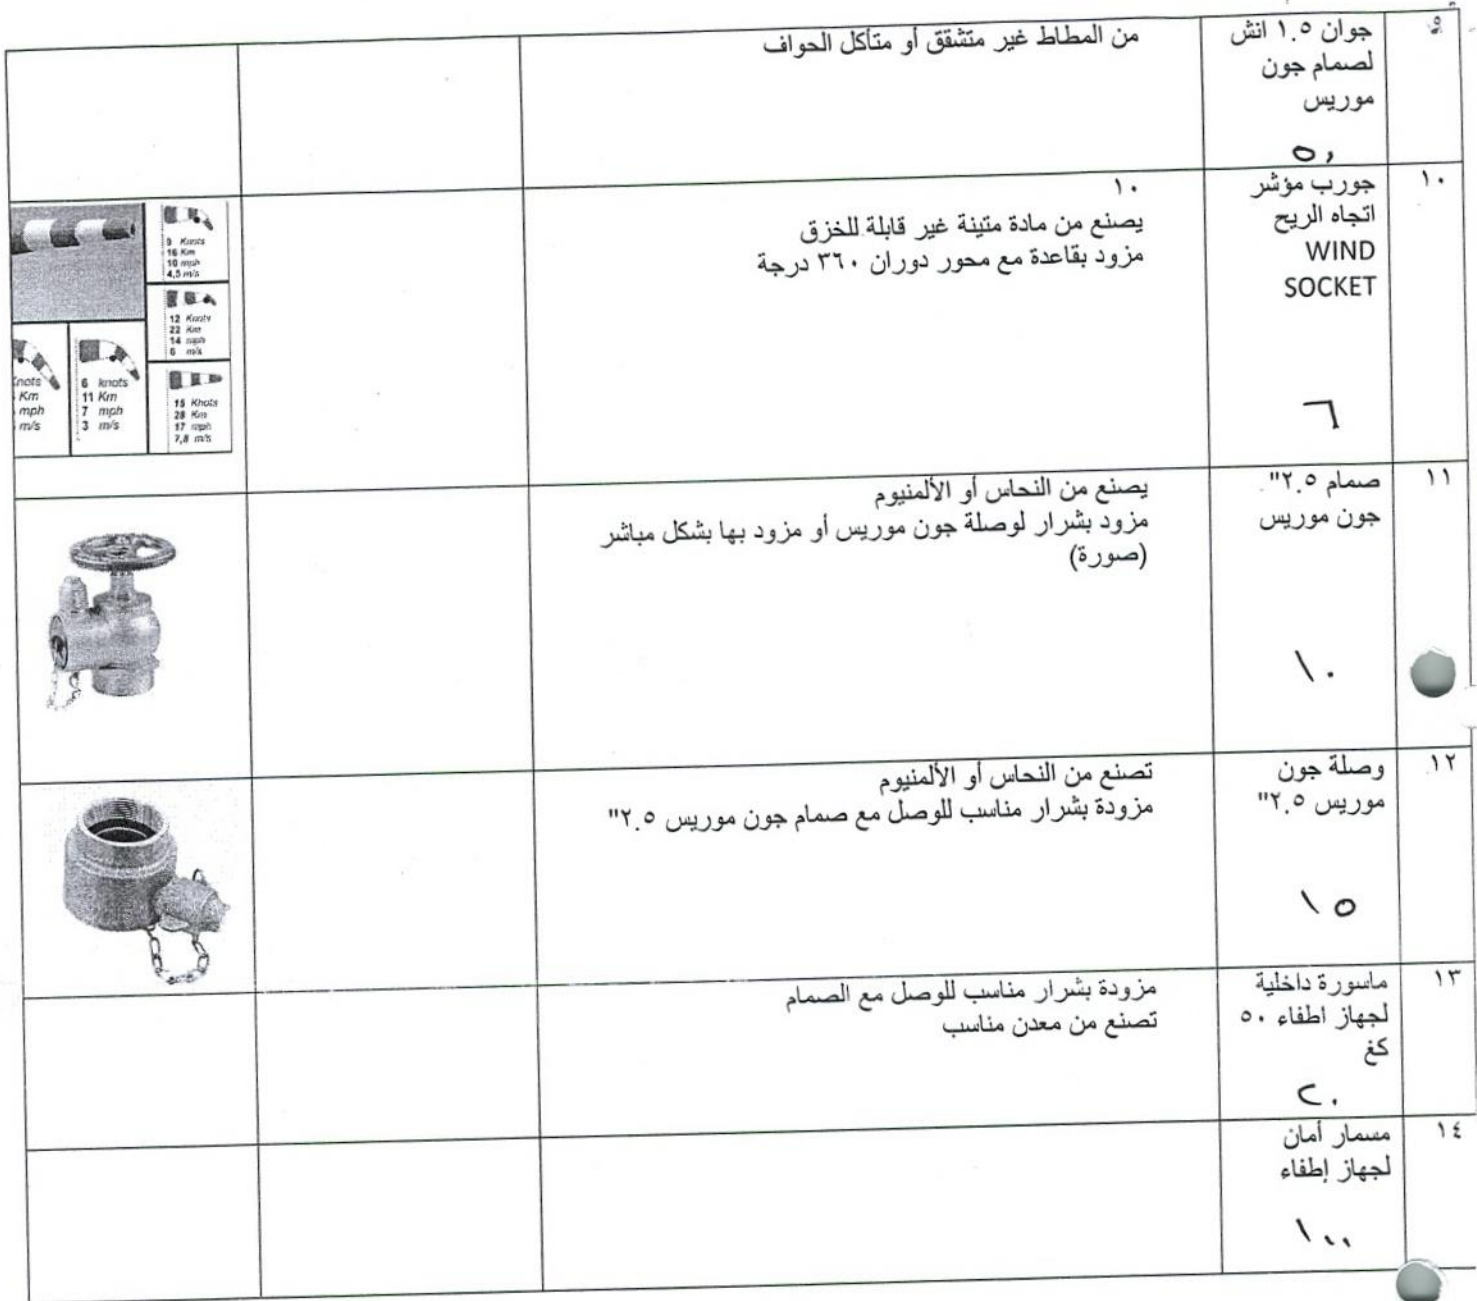 ٩
جوان ١.٥ انش
لصمام جون
موريس
٥٠
من المطاط غير متشقق أو متأكل الحواف
١٠
جورب مؤشر
اتجاه الريح
WIND
SOCKET
٦
١٠
يصنع من مادة متينة غير قابلة للخزق
مزود بقاعدة مع محور دوران ٣٦٠ درجة
9 Knots
16 Km
10 mph
4,5 m/s
12 Knots
22 Km
14 mph
6 m/s
Knots
Km
mph
m/s
6 knots
11 Km
7 mph
3 m/s
15 Knots
28 Km
17 mph
7,8 m/s
١١
صمام ٢.٥"
جون موريس
١٠
يصنع من النحاس أو الألمنيوم
مزود بشرار لوصلة جون موريس أو مزود بها بشكل مباشر
(صورة)
١٢
وصلة جون
موريس ٢.٥"
١٥
تصنع من النحاس أو الألمنيوم
مزودة بشرار مناسب للوصل مع صمام جون موريس ٢.٥"
١٣
ماسورة داخلية
لجهاز اطفاء ٥٠
كغ
٢٠
مزودة بشرار مناسب للوصل مع الصمام
تصنع من معدن مناسب
١٤
مسمار أمان
لجهاز إطفاء
١٠٠